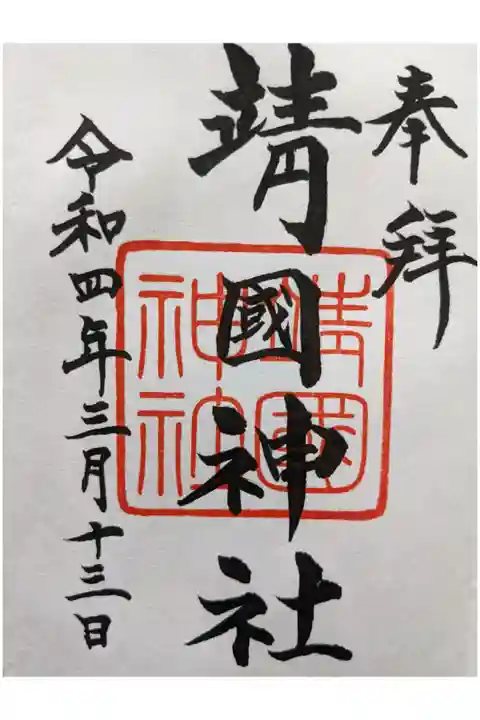 奉拝
靖國神社
靖國神社
令和四年三月十三日